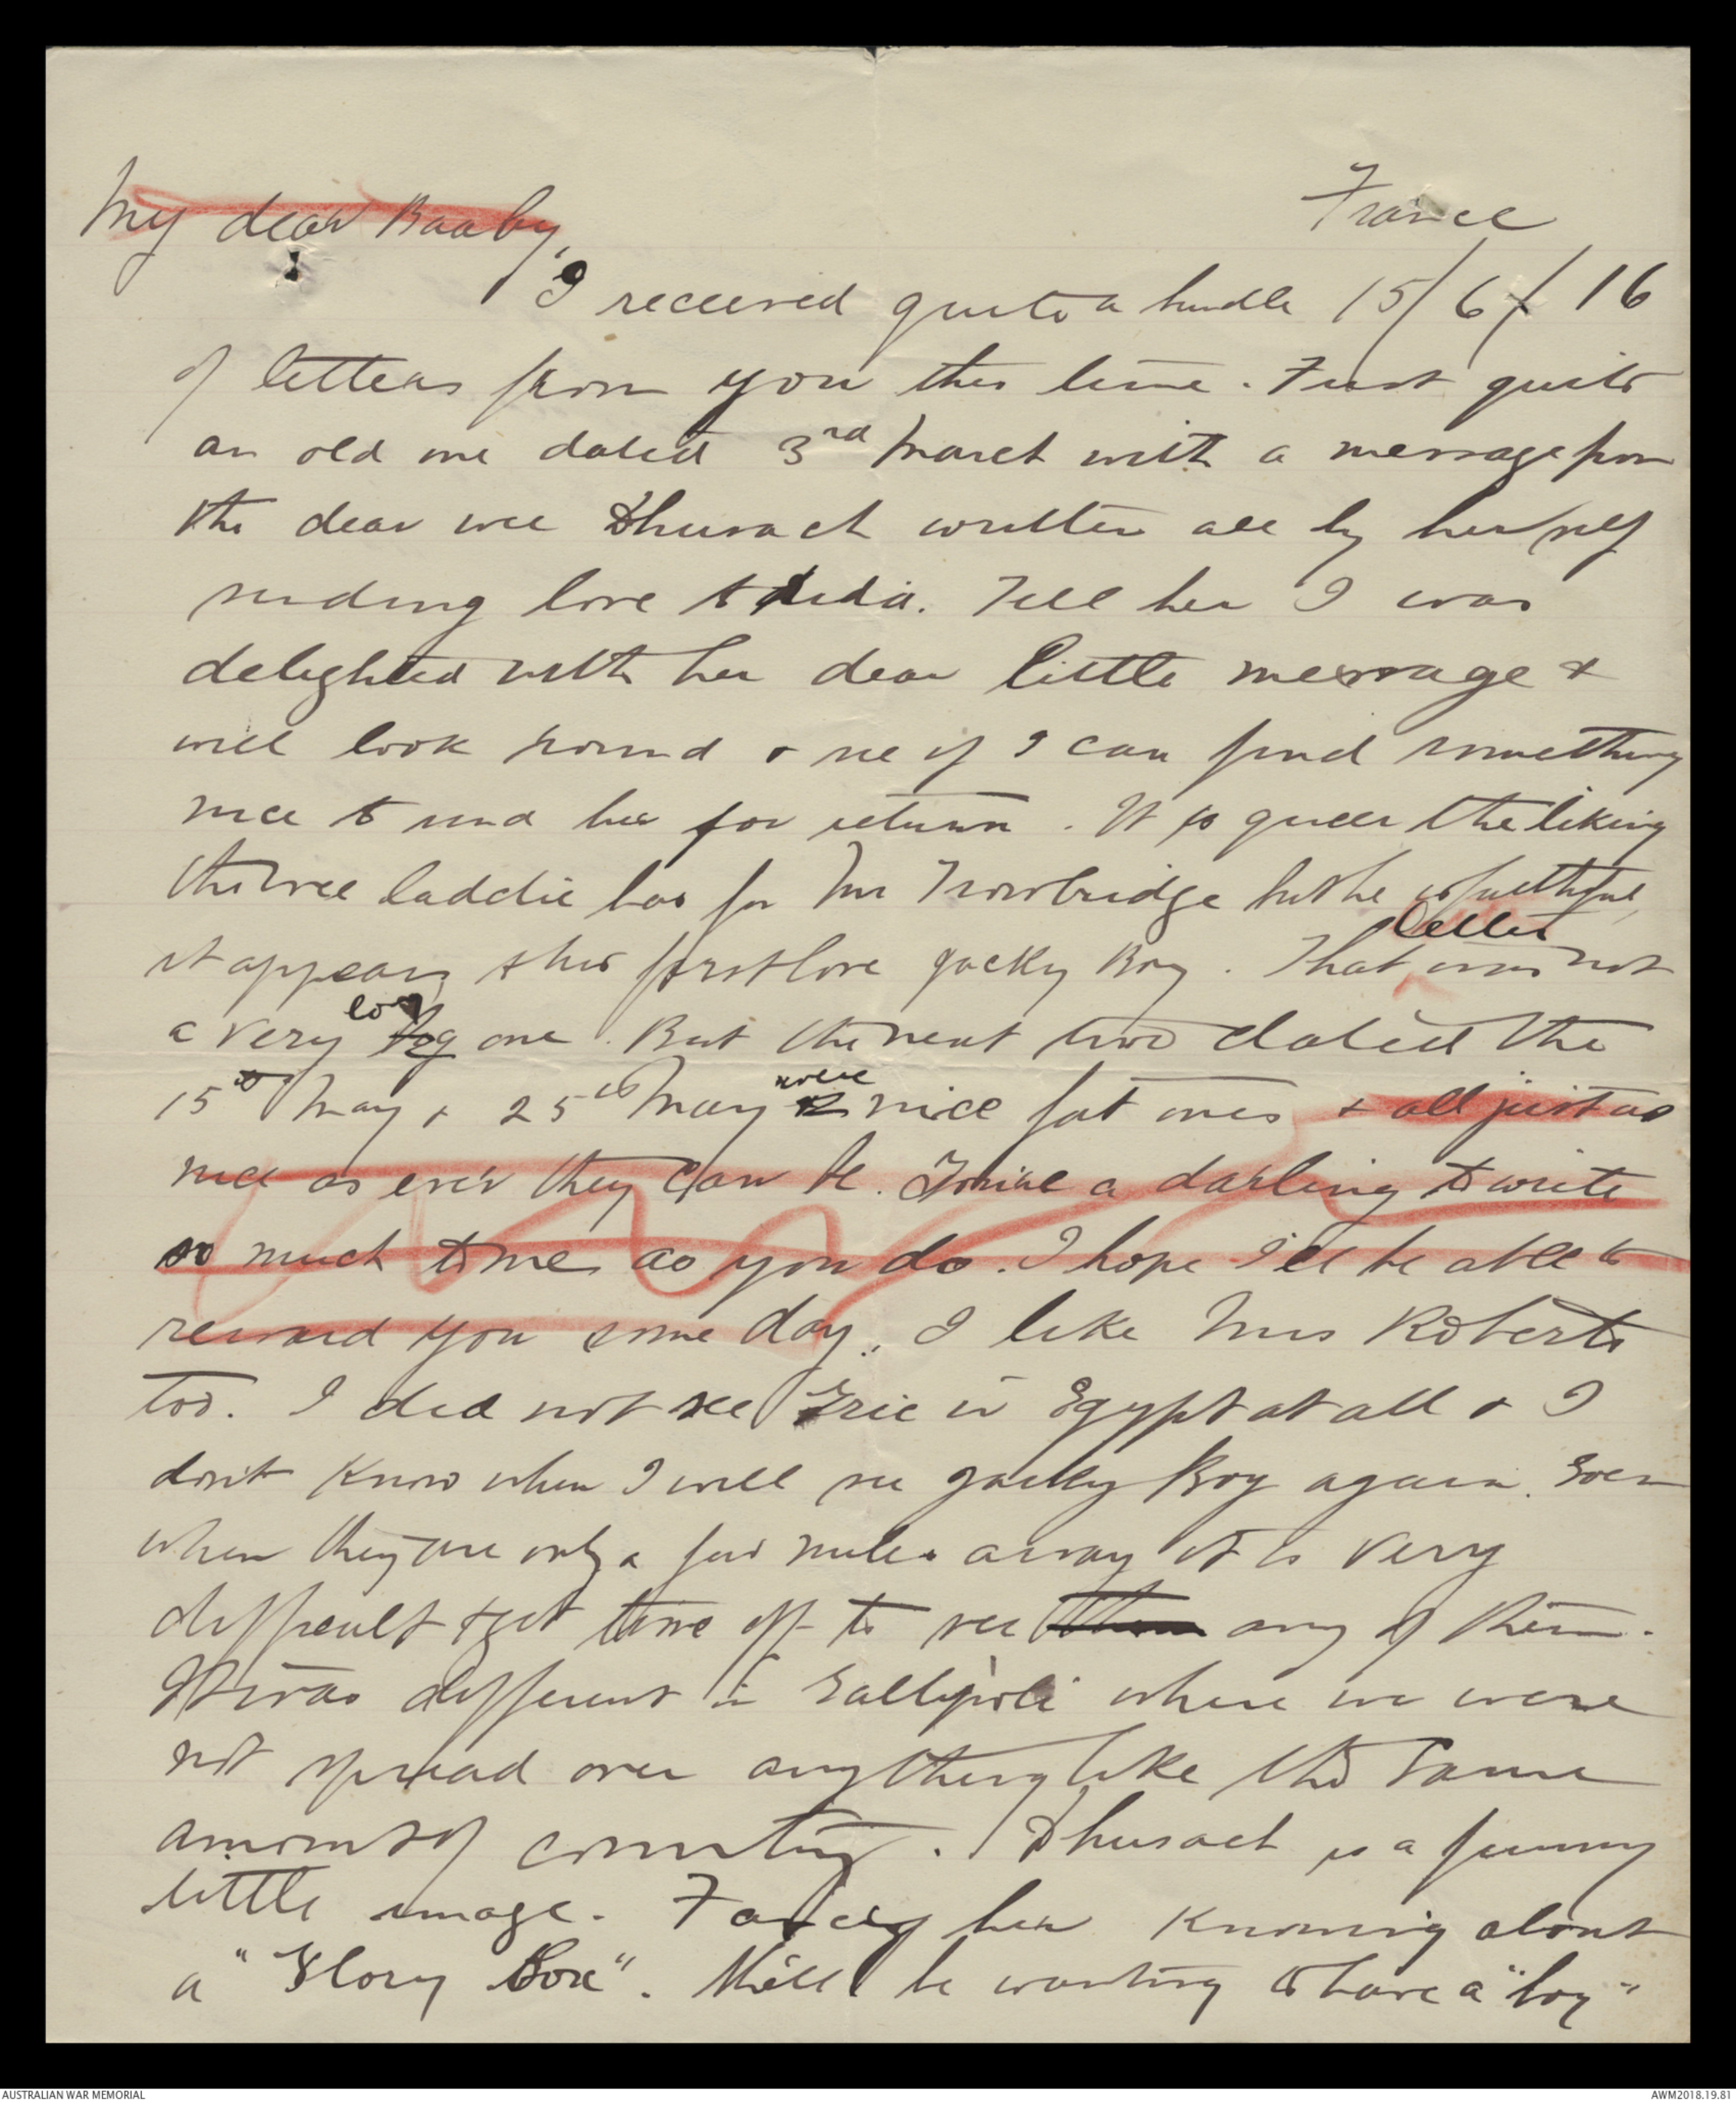 France
My dear Baaby,
I received quite a bundle 15/6/16
of letters from you this time. First quite
an old one dated 3rd March with a message from
the dear wee Dhusach written all by herself
sending love to Dida. Tell her I was
delighted with her dear little message &
will look round & see if I can find something
nice to send her for return. It is queer the liking
the wee laddie has for Mr Trowbridge but he is faithful,
it appears, to his first love Jacky Boy. That letter was not
a very long one. But the next two dated the
15th May & 25th May were nice fat ones & all just as
nice as ever they can be. You're a darling to write
so much to me as you do. I hope I'll be able to
reward you some day. I like Mrs Roberts
too. I did not see Eric in Egypt at all & I
don't know when I will see Jacky Boy again. Even
when they are only a few miles away it is very
difficult to get time off to see them any of them.
It was different in Gallipoli where we were
not spread over anything like the same
amount of country. Dhusach is a funny
little image. Fancy her knowing about
a "Glory Box". She'll be wanting to have a "boy"
AUSTRALIAN WAR MEMORIAL
AWM2018.19.81